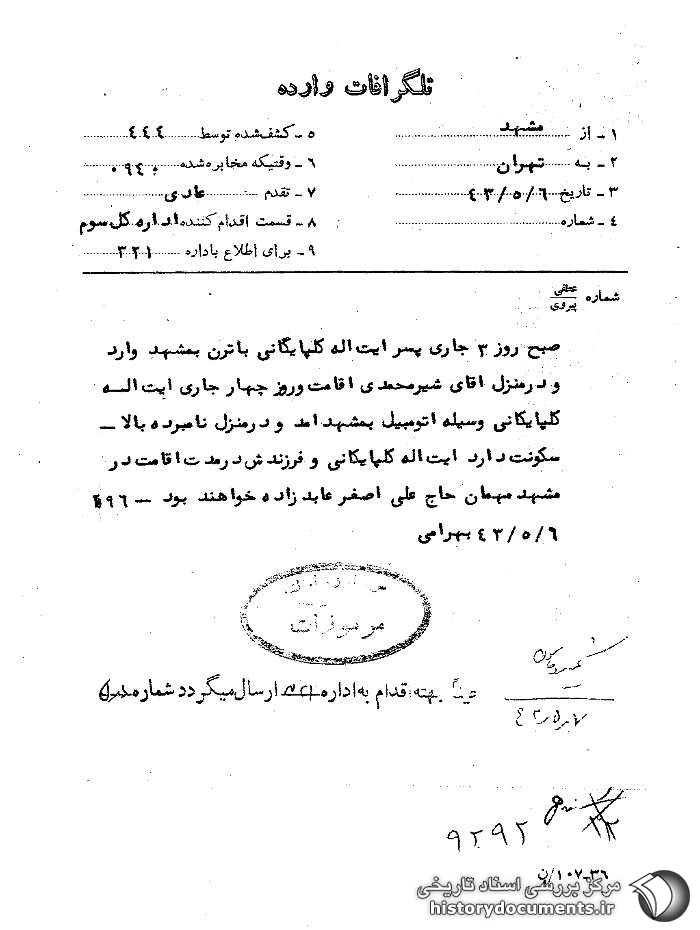 تلگرافات وارده
۱ - از مشهد
۲ - به تهران
۳ - تاریخ ۴۳/۵/۶
۴ - شماره
۵ - کشف شده توسط ۴۴۴
۶ - وقتیکه مخابره شده ۰۹۴۰
۷ - تقدم عادی
۸ - قسمت اقدام کننده اداره کل سوم
۹ - برای اطلاع باداره ۳۲۱
شماره عطفی
پیروی
صبح روز ۳ جاری پسر ایت اله گلپایگانی باترن بمشهد وارد
و درمنزل اقای شیرمحمدی اقامت وروز چهار جاری ایت الــه
گلپایگانی وسیله اتومبیل بمشهد امد و درمنزل نامبرده بالا ــ
سکونت دارد ایت اله گلپایگانی و فرزندش درمدت اقامت در
مشهد مهمان حاج علی اصغر عابدزاده خواهند بود ــ ۹۶
۴۳/۵/۶ بهرامی
مرموزات
عیناً بهته اقدام به اداره ارسال میگردد شماره
۹۲۹۲
۳۶-۱۰۷/ن
مرکز بررسی اسناد تاریخی
historydocuments.ir